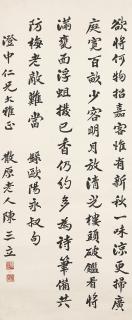 欲將何物招嘉客惟有新秋一味涼更掃廣
庭寬百畝少容明月放清光樓頭破鑑看將
滿甕面浮蛆撥已香仍約多為詩筆備共
防梅老敵難當　緜歐陽永叔句
澄中仁兄大雅正　散原老人陳三立